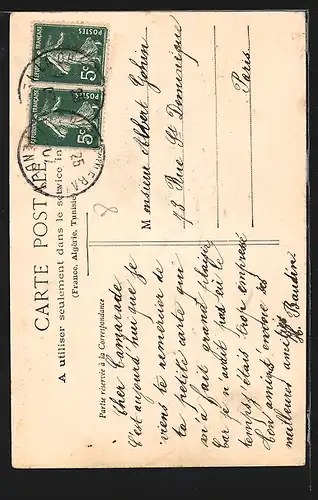 CARTE POSTALE
A utiliser seulement dans le service in
(France, Algérie, Tunisie
Partie réservée à la Correspondance
Cher Camarade
C'est aujourd'hui que je
viens te remercier de
ta petite carte qui
m'a fait grand plaisir
car je n'aubit pas eu le
temps, étais trop empressé
Ton ami qui envoie ses
meilleures amitiés
Baudin
Monsieur Albert Gohin
13 Rue St Dominique
Paris
8
REPUBLIQUE FRANÇAISE
POSTES
5c
REPUBLIQUE FRANÇAISE
POSTES
5c
25